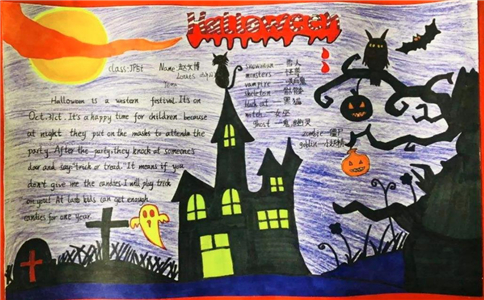 Halloween
Class: JPEt Name: 赵文博
Halloween is a western festival. It's on
Oct. 31st. It's a happy time for children, because
at night they put on the masks to attend the
party. After the party, they knock at someone's
door and say: "trick or treat." It means if you
don't give me the candies. I will play trick
on you! At last kids can get enough
candies for one year.
snowman 雪人
monsters 怪兽
vampire 吸血鬼
skeleton 骷髅
black cat 黑猫
witch 女巫
ghost 鬼 幽灵
zombie 僵尸
goblin 小妖精